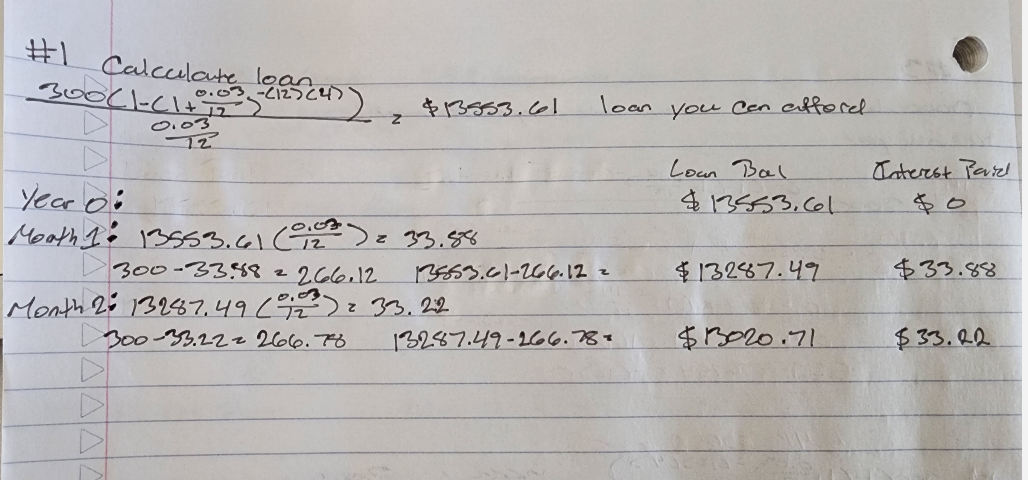 #1 Calculate loan
300(1-(1+0.03/12)^-(12)(4)) / (0.03/12) = $13553.61 loan you can afford
Loan Bal Interest Paid
Year 0: $13553.61 $0
Month 1: 13553.61(0.03/12) = 33.88
300-33.88 = 266.12 13553.61-266.12 = $13287.49 $33.88
Month 2: 13287.49(0.03/12) = 33.22
300-33.22 = 266.78 13287.49-266.78= $13020.71 $33.22